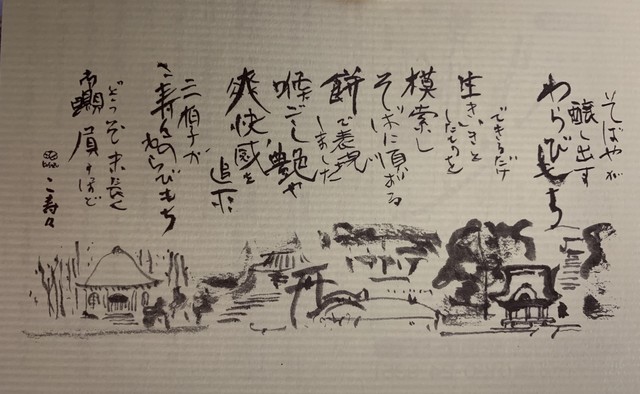 そばやが
醸し出す
わらびもち
できるだけ
生き生きと
したもちを
模索し
そばに順がる
餅で表現
しました
喉ごし、艶や
爽快感を
追求
三拍子が
こ寿々のわらびもち
どうぞ末長く
御贔屓のほど
こ寿々